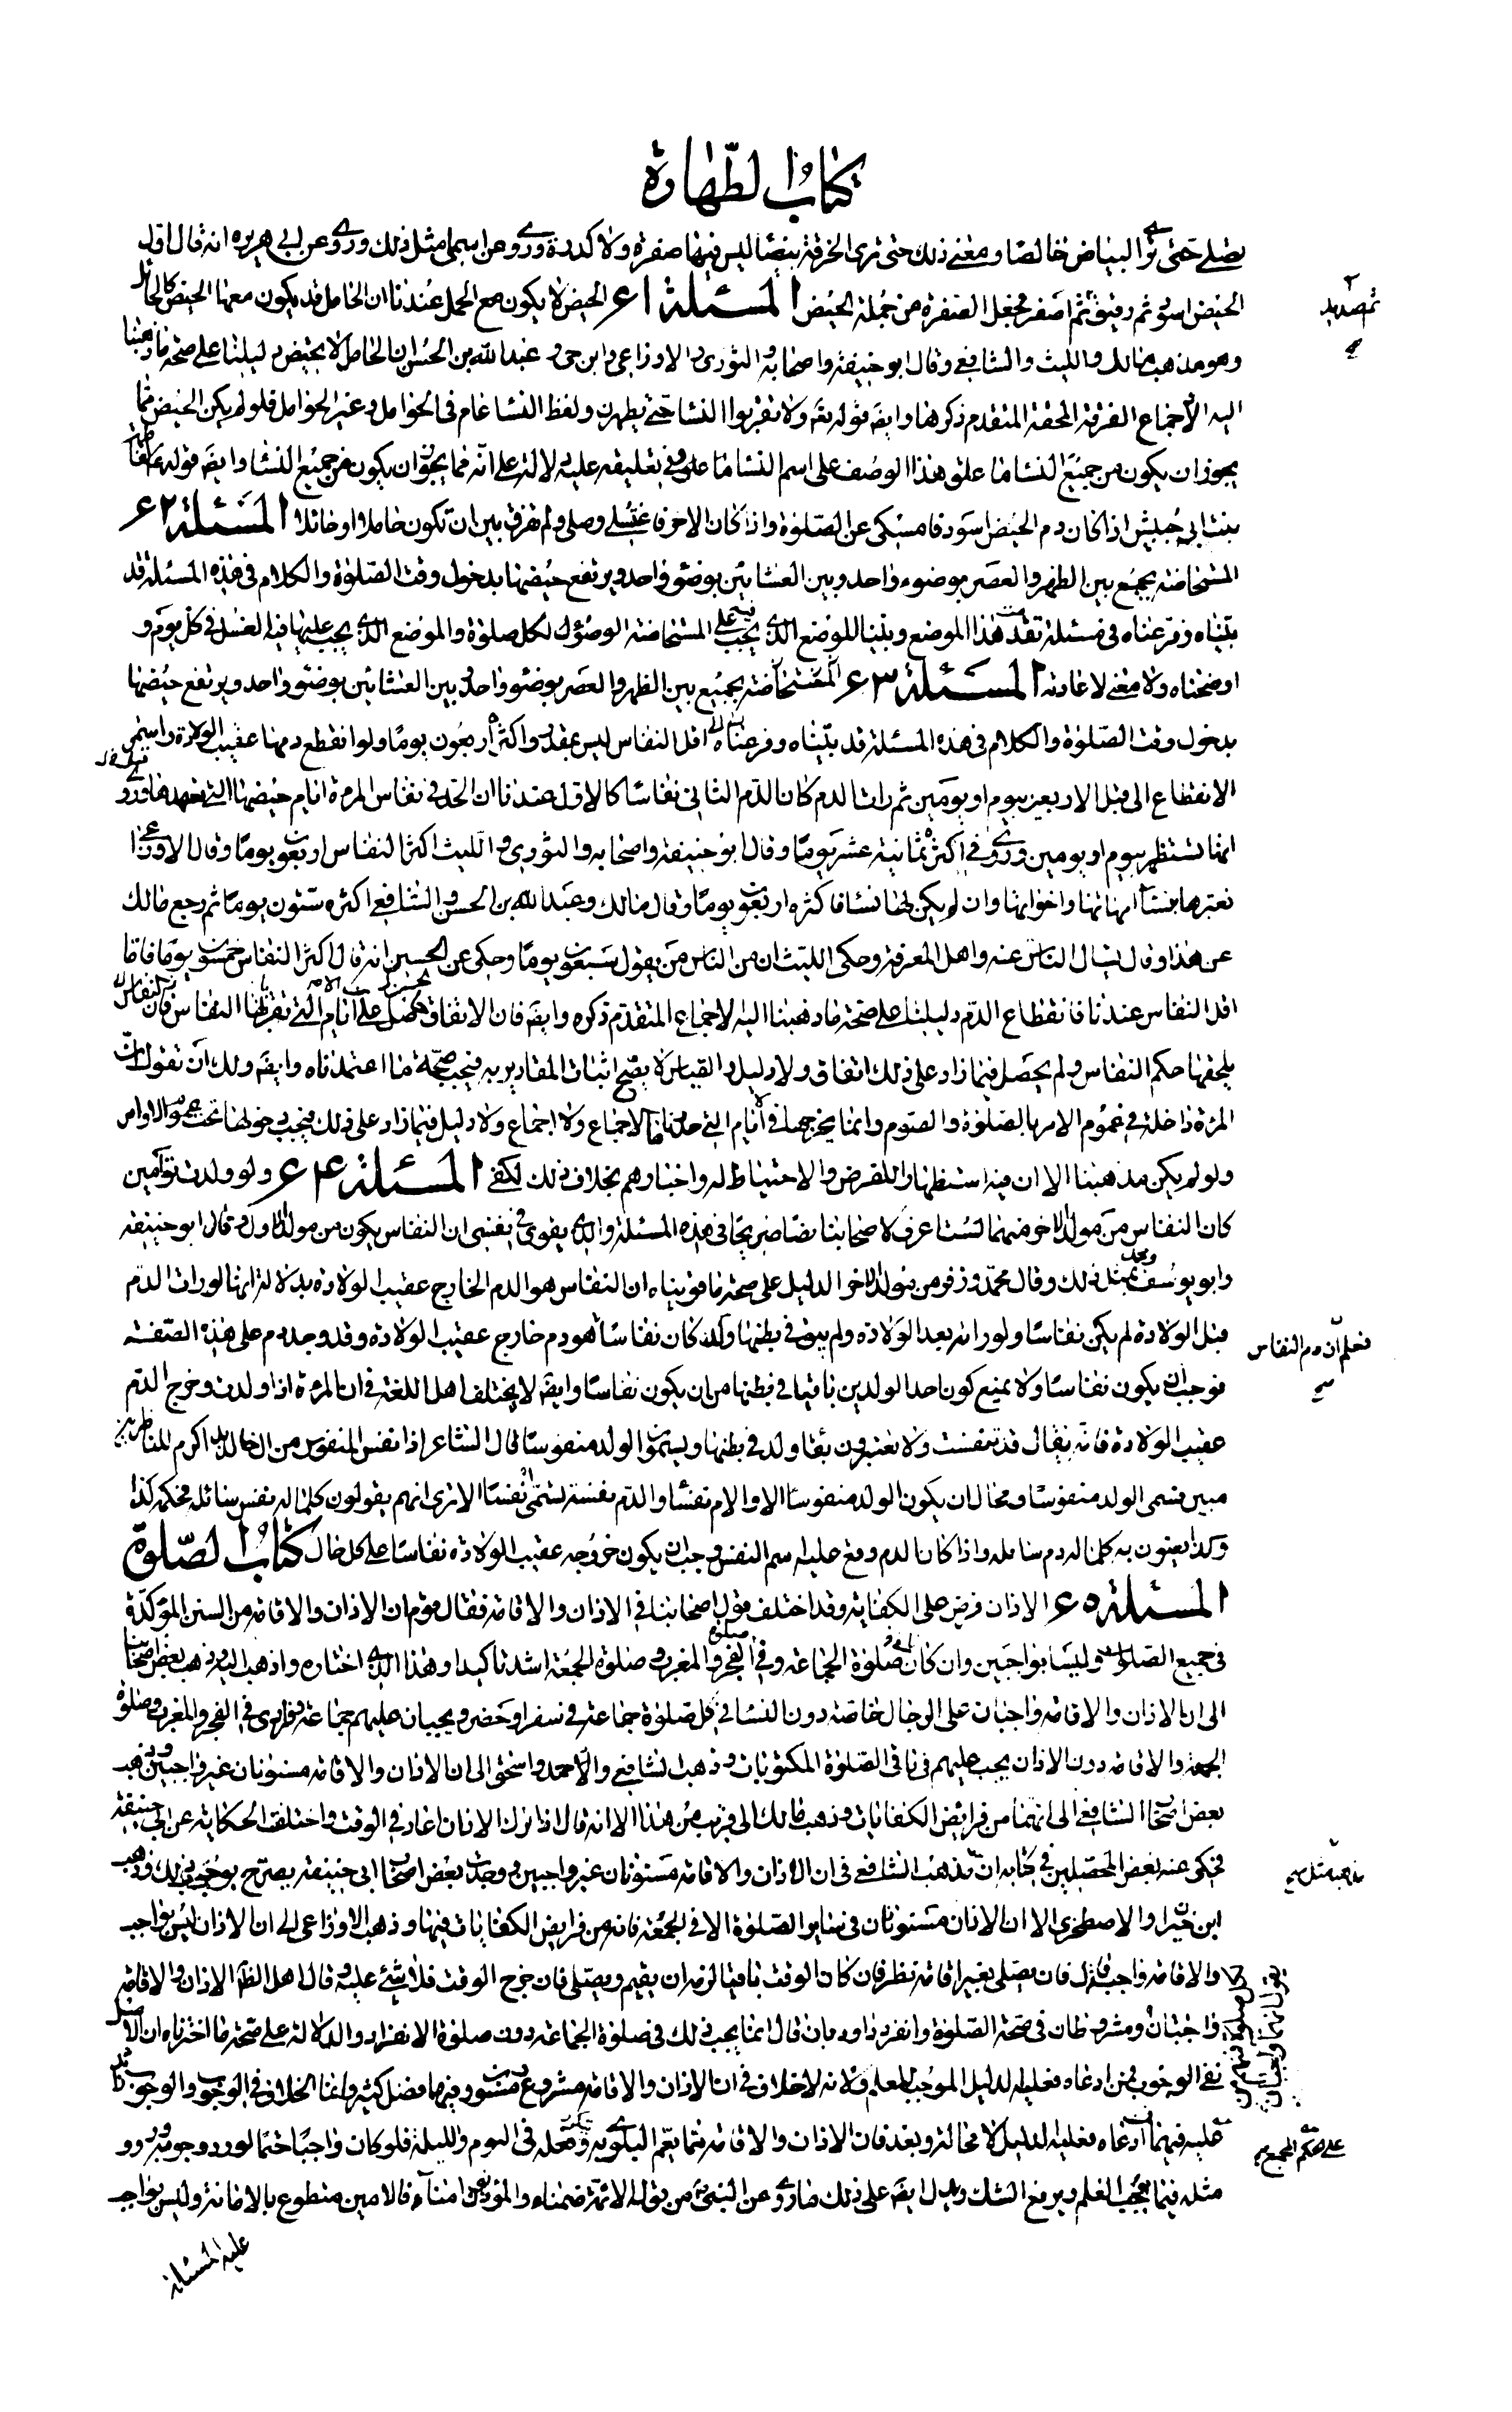 كتاب الطهارة
تصلي حتى ترى البياض خالصا ومعنى ذلك حتى ترى الخرقة بيضا ليس فيها صفرة ولا كدرة وروى عن اسما مثل ذلك وروى عن ابي هريره انه قال اول
الحيض اسود ثم رقيق ثم اصفر فجعل الصفرة من جملة الحيض المسئلة ٦١ الحيض لا يكون مع الحمل عندنا ان الحامل قد يكون معها الحيض كالحائل
وهو مذهب مالك والليث والشافعي وقال ابو حنيفة واصحابه والثوري والاوزاعي وابن حي و عبد الله بن الحسن ان الحامل لا تحيض دليلنا على صحة ما ذهبنا
اليه الاجماع الفرقة المحقة المتقدم ذكرها وايضا قوله تعه ولا تقربوا النسا حتى يطهرن ولفظ النسا عام في الحوامل و غير الحوامل فلو لم يكن الحيض مما
يجوز ان يكون من جميع النسا ما علق هذا الوصف على اسم النسا ما علق وفي تعليقه عليه دلالة على انه مما يجوز ان يكون من جميع النسا وايضا قوله لفاطمة
بنت ابي حبيش اذا كان دم الحيض اسود فامسكي عن الصلوة واذا كان الاخر فاغتسلي وصلي ولم يفرق بين ان تكون حاملا او حائلا المسئلة ٦٢
المستحاضة يجمع بين الظهر والعصر بوضوء واحد وبين العشائين بوضوء واحد ويرتفع حيضها بدخول وقت الصلوة والكلام في هذه المسئلة قد
بيناه وفرعناه في مسئلة تقدمت هذا الموضع وبينا الموضع الذي يجب فيه على المستحاضة الوضوء لكل صلوة والموضع الذي يجب عليها فيه الغسل في كل يوم و
اوضحناه ولا معنى لاعادته المسئلة ٦٣ المستحاضة يجمع بين الظهر والعصر بوضوء واحد وبين العشائين بوضوء واحد ويرتفع حيضها
بدخول وقت الصلوة والكلام في هذه المسئلة قد بيناه وفرعناه اقل النفاس ليس بمقدر واكثره اربعون يوما ولو انقطع دمها عقيب الولادة واستمر
الانقطاع الى قبل الاربعين بيوم او يومين ثم رات الدم كان الدم الثاني نفاسا كالاول عندنا ان الحد في نفاس المرءة ايام حيضها التي تعهدها وروى
انها تستظهر بيوم او يومين وروى في اكثره ثمانية عشر يوما وقال ابو حنيفة واصحابه والثوري والليث اكثر النفاس اربعون يوما وقال الاوزاعي
تعتبرها بنسا امهاتها واخواتها وان لم يكن لها نسا فاكثره اربعون يوما وقال مالك وعبد الله بن الحسن والشافعي اكثره ستون يوما ثم رجع مالك
عن هذا وقال يسال الناس عنه واهل المعرفة وحكى الليث ان من الناس من يقول سبعون يوما وحكى عن الحسن انه قال اكثر النفاس خمسون يوما فاما
اقل النفاس عندنا فانقطاع الدم دليلنا على صحة ما ذهبنا اليه الاجماع المتقدم ذكره وايضا فان الاتفاق حاصل على ان الايام التي تقربها النفاس فان النفاس
يلحقها حكم النفاس ولم يحصل فيما زاد على ذلك اتفاق ولا دليل والقياس لا يصح اثبات المقادير به فيجب صحة ما اعتمدناه وايضا ولك ان تقول ان
المرءة داخلة في عموم الامر بالصلوة والصوم وانما يخرجها في الايام التي حددناها الاجماع ولا اجماع ولا دليل فيما زاد على ذلك فيجب دخولها تحت عموم الاوامر
ولو لم يكن مذهبنا الا ان فيه استظهارا للفرض والاحتياط له واخبارهم بخلاف ذلك لكفى المسئلة ٦٤ ولو ولدت توأمين
كان النفاس من مولد الاخر منهما لست اعرف لاصحابنا نصا صريحا في هذه المسئلة والذي يقوى في نفسي ان النفاس يكون من مولد الاول وقال ابو حنيفة
وابو يوسف بمثل ذلك وقال محمد وزفر من مولد الاخر الدليل على صحة ما قويناه ان النفاس هو الدم الخارج عقيب الولادة بدلالة انها لو رات الدم
قبل الولادة لم يكن نفاسا ولو راته بعد الولادة ولم يبق في بطنها ولد كان نفاسا هو دم خارج عقيب الولادة وقد وجد دم على هذه الصفة
فوجب ان يكون نفاسا ولا يمنع كون احد الولدين باقيا في بطنها من ان يكون نفاسا وايضا لا يختلف اهل اللغة في ان المرءة اذا ولدت وخرج الدم
عقيب الولادة فانه يقال قد تنفست ولا يعتبرون بقا ولد في بطنها ويسمون الولد منفوسا قال الشاعر اذا نفس المنفوس من الخالد اكرم للناظرين
مبين فسمى الولد منفوسا ومحال ان يكون الولد منفوسا الا والام نفسا والدم نفسه يسمى نفسا الا ترى انهم يقولون كلما له نفس سائله فحكمه كذا
وكذا يعنون به كلما له دم سائله واذا كان الدم وقع عليه اسم النفس وجب ان يكون خروجه عقيب الولادة نفاسا على كل حال كتاب الصلوة
المسئلة ٦٥ الاذان فرض على الكفاية وقد اختلف قول اصحابنا في الاذان والاقامة فقال قوم ان الاذان والاقامة من السنن المؤكدة
في جميع الصلوات وليسا بواجبين وان كان في صلوة الجماعة وفي الفجر والمغرب و صلوة الجمعة اشد تاكيدا وهذا الذي اختاره واذهب اليه وذهب بعض اصحابنا
الى ان الاذان والاقامة واجبان على الرجال خاصة دون النسا في كل صلوة جماعة في سفر او حضر ويجبان عليهم جماعة وفرادى في الفجر والمغرب وصلوة
الجمعة والاقامة دون الاذان يجب عليهم في باقي الصلوة المكتوبات وذهب الشافعي والاحمد واسحق الى ان الاذان والاقامة مسنونان غير واجبين وذهب
بعض اصحاب الشافعي الى انهما من فرائض الكفايات وذهب مالك الى قريب من هذا الا انه قال اذا ترك الاذان اعاد في الوقت واختلفت الحكاية عن ابي حنيفة
فحكى عنه بعض المحصلين في كتابه ان مذهب الشافعي في ان الاذان والاقامة مسنونان غير واجبين ووجدت بعض اصحاب ابي حنيفة يصرح بوجوب ذلك وذهب
ابن خيران والاصطخري الا ان الاذان مسنونان في سائر الصلوة الا في الجمعة فانه من فرايض الكفايات فيها وذهب الاوزاعي الى ان الاذان ليس بواجب
والاقامة واجب فان صلى بغير اقامة نظر فان كان الوقت باقيا لزمه ان يقيم ويصلي فان خرج الوقت فلا شيء عليه وقال اهل الظاهر الاذان والاقامة
واجبان ومشروطان في صحة الصلوة وانفرد داود بان قال انما يجب ذلك في صلوة الجماعة دون صلوة الانفراد والدلالة على صحة ما اخترناه ان الاصل
نفي الوجوب فمن ادعاه فعليه الدليل الموجب للعلم ولانه لا خلاف في ان الاذان والاقامة مشروع مسنون وفيهما فضل كثير وانما الخلاف في الوجوب والوجوب
عليه فيهما فمن ادعاه فعليه الدليل لا محالة وبعد فان الاذان والاقامة مما يعم البلوى به وفعله في اليوم والليلة فلو كان واجبا حتما لورد وجوبه ورود
مثله فيما يوجب العلم ويرفع الشك ويدل ايضا على ذلك ما روى عن النبي من قوله الائمة ضمناء والمؤذنون امناء فالامين متطوع بالامانة وليس بواجب
عليه المسئلة
فعلم ان دم النفاس
مذهبه مثل